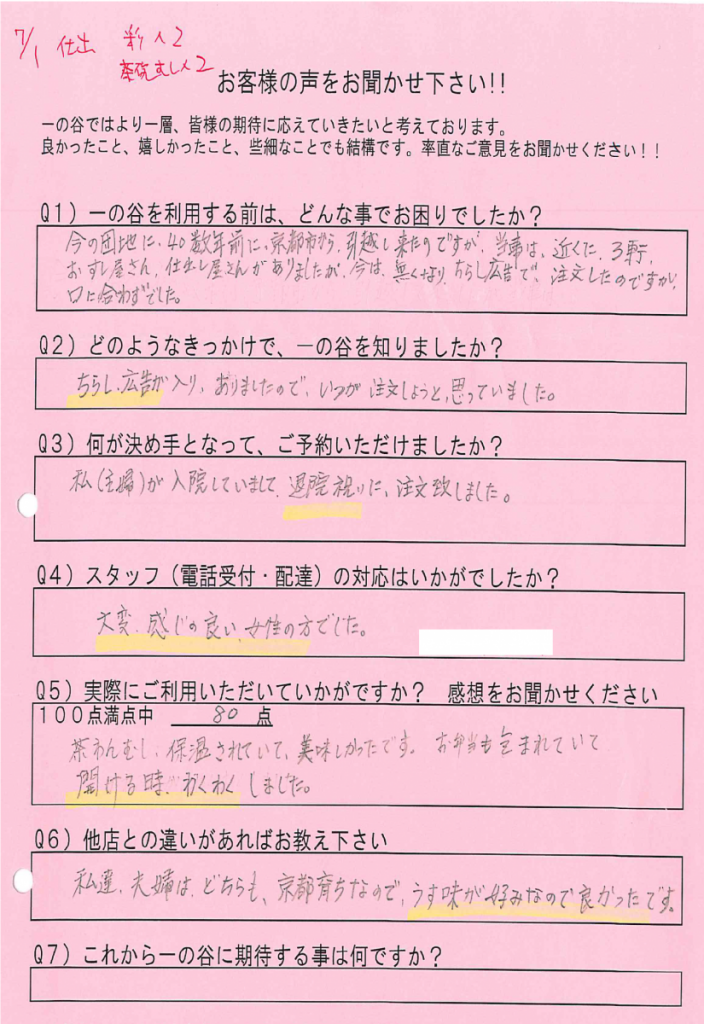 7/1 仕出 彩×2
茶碗むし×2
お客様の声をお聞かせ下さい!!
一の谷ではより一層、皆様の期待に応えていきたいと考えております。
良かったこと、嬉しかったこと、些細なことでも結構です。率直なご意見をお聞かせください！！
Q1）一の谷を利用する前は、どんな事でお困りでしたか？
今の団地に、40数年前に、京都市から、引越し来たのですが、当時は、近くに、3軒、
おすし屋さん、仕出し屋さんがありましたが、今は、無くなり、ちらし広告で、注文したのですが、
口に合わずでした。
Q2）どのようなきっかけで、一の谷を知りましたか？
ちらし、広告が入り、ありましたので、いつか注文しようと、思っていました。
Q3）何が決め手となって、ご予約いただけましたか？
私（主婦）が入院していまして、退院祝いに、注文致しました。
Q4）スタッフ（電話受付・配達）の対応はいかがでしたか？
大変、感じの良い、女性の方でした。
Q5）実際にご利用いただいていかがですか？　感想をお聞かせください
100点満点中　80　点
茶わんむし、保温されていて、美味しかったです。お弁当も包まれていて
開ける時、わくわくしました。
Q6）他店との違いがあればお教え下さい
私達、夫婦は、どちらも、京都育ちなので、うす味が好みなので良かったです。
Q7）これから一の谷に期待する事は何ですか？